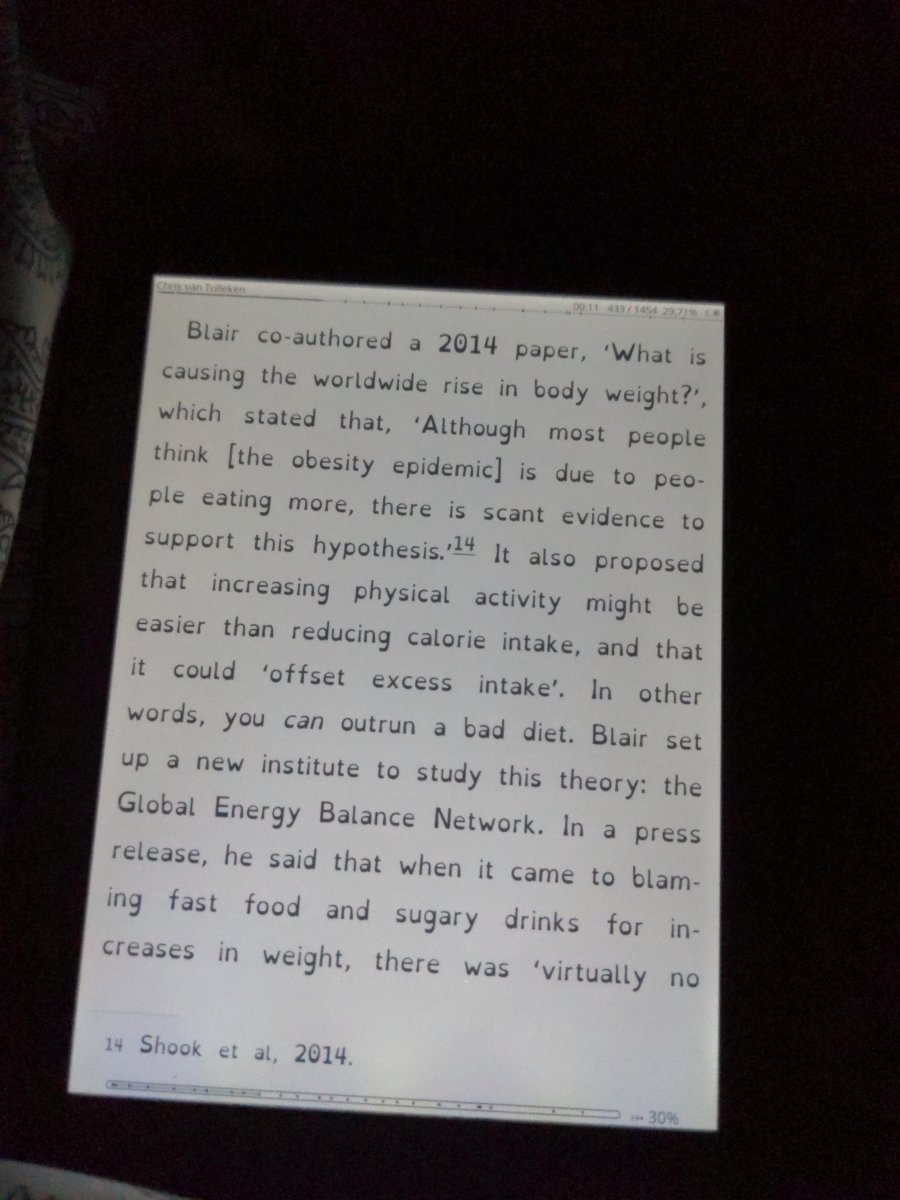 Chris van Tulleken
00:11 433 / 1454 29,71%
Blair co-authored a 2014 paper, ‘What is
causing the worldwide rise in body weight?’,
which stated that, ‘Although most people
think [the obesity epidemic] is due to peo-
ple eating more, there is scant evidence to
support this hypothesis.’14 It also proposed
that increasing physical activity might be
easier than reducing calorie intake, and that
it could ‘offset excess intake’. In other
words, you can outrun a bad diet. Blair set
up a new institute to study this theory: the
Global Energy Balance Network. In a press
release, he said that when it came to blam-
ing fast food and sugary drinks for in-
creases in weight, there was ‘virtually no
14 Shook et al, 2014.
30%